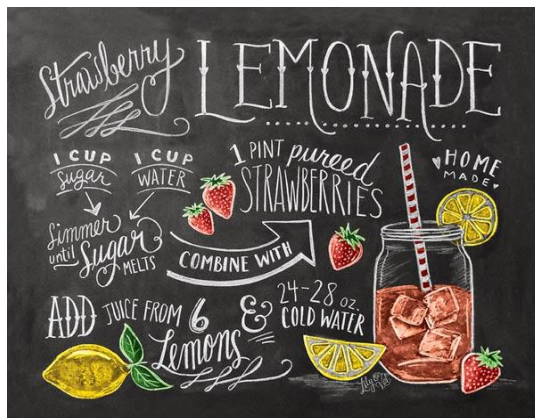 Strawberry LEMONADE
1 CUP Sugar
1 CUP WATER
Simmer until Sugar MELTS
COMBINE WITH
1 PINT pureed
STRAWBERRIES
HOME
MADE
ADD JUICE FROM 6
Lemons
& 24-28 oz.
COLD WATER
Lily & Val